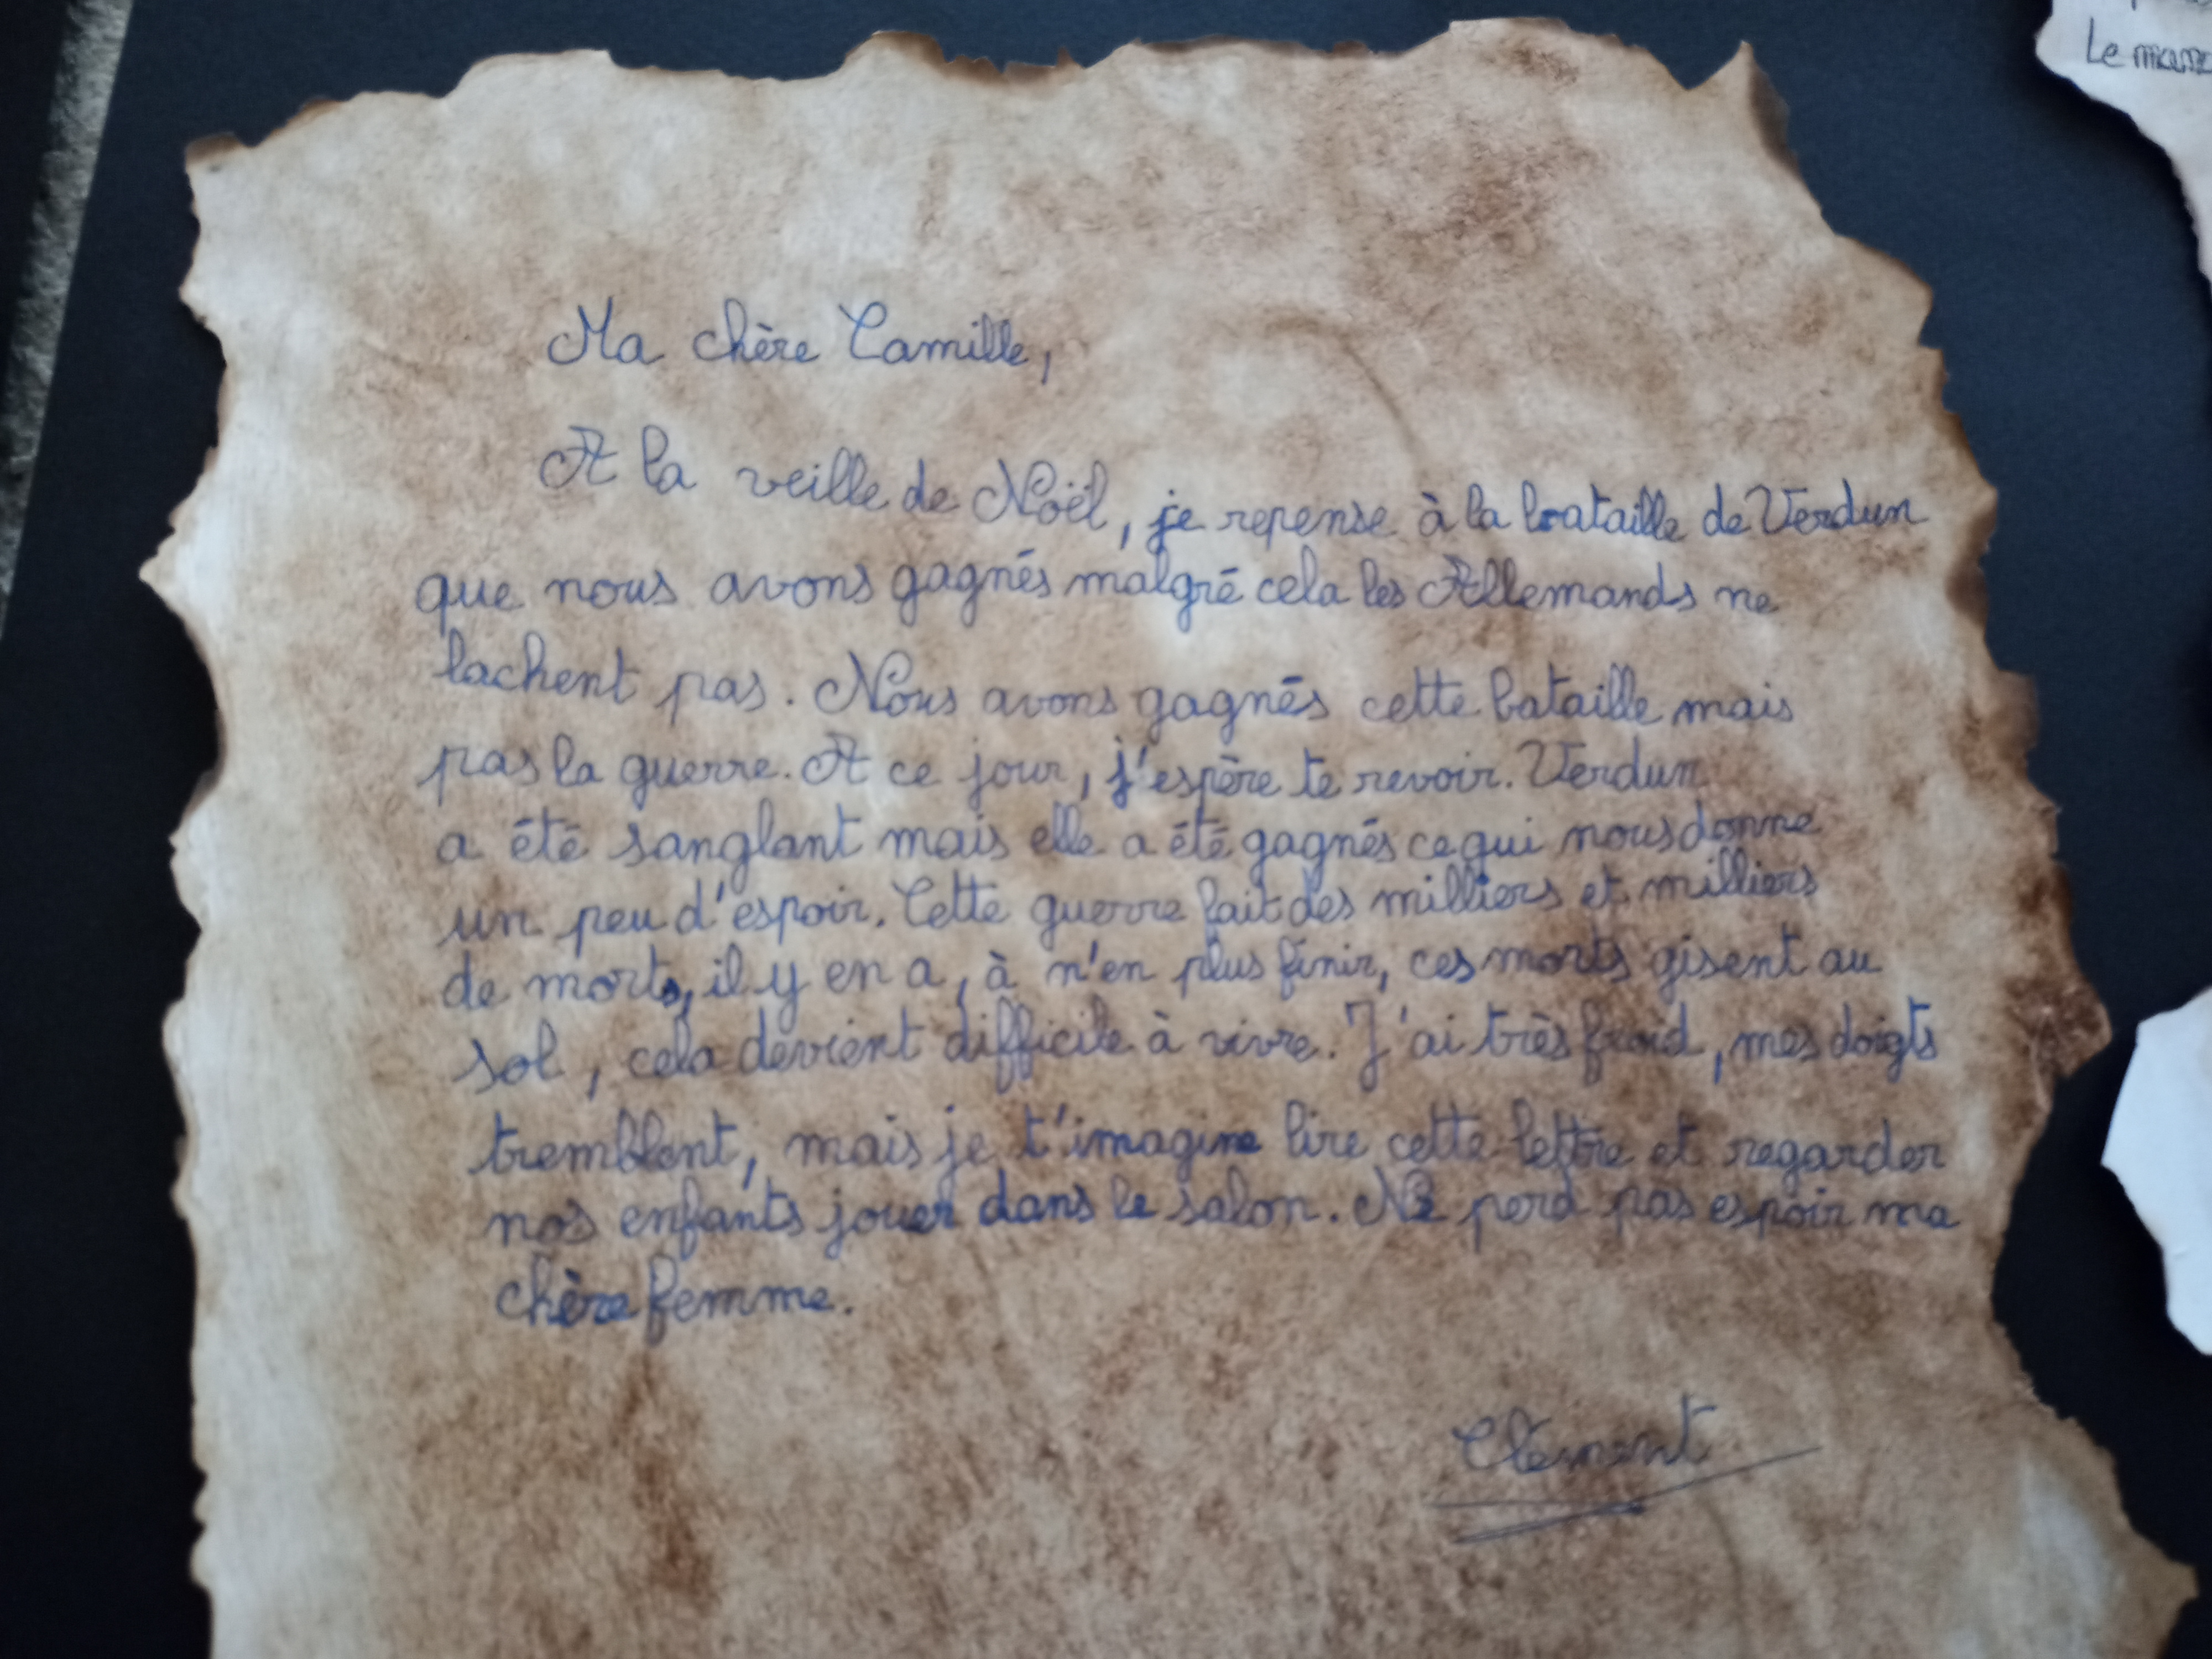 Le
Ma chère Camille,
A la veille de Noël, je repense à la bataille de Verdun
que nous avons gagnés malgré cela les Allemands ne
lachent pas. Nous avons gagnés cette bataille mais
pas la guerre. A ce jour, j'espère te revoir. Verdun
a été sanglant mais elle a été gagnés ce qui nous donne
un peu d'espoir. Cette guerre fait des milliers et milliers
de morts, il y en a, à n'en plus finir, ces morts gisent au
sol, cela devient difficile à vivre. J'ai très froid, mes doigts
tremblent, mais je t'imagine lire cette lettre et regarder
nos enfants jouer dans le salon. Ne perd pas espoir ma
chère femme.
Clément